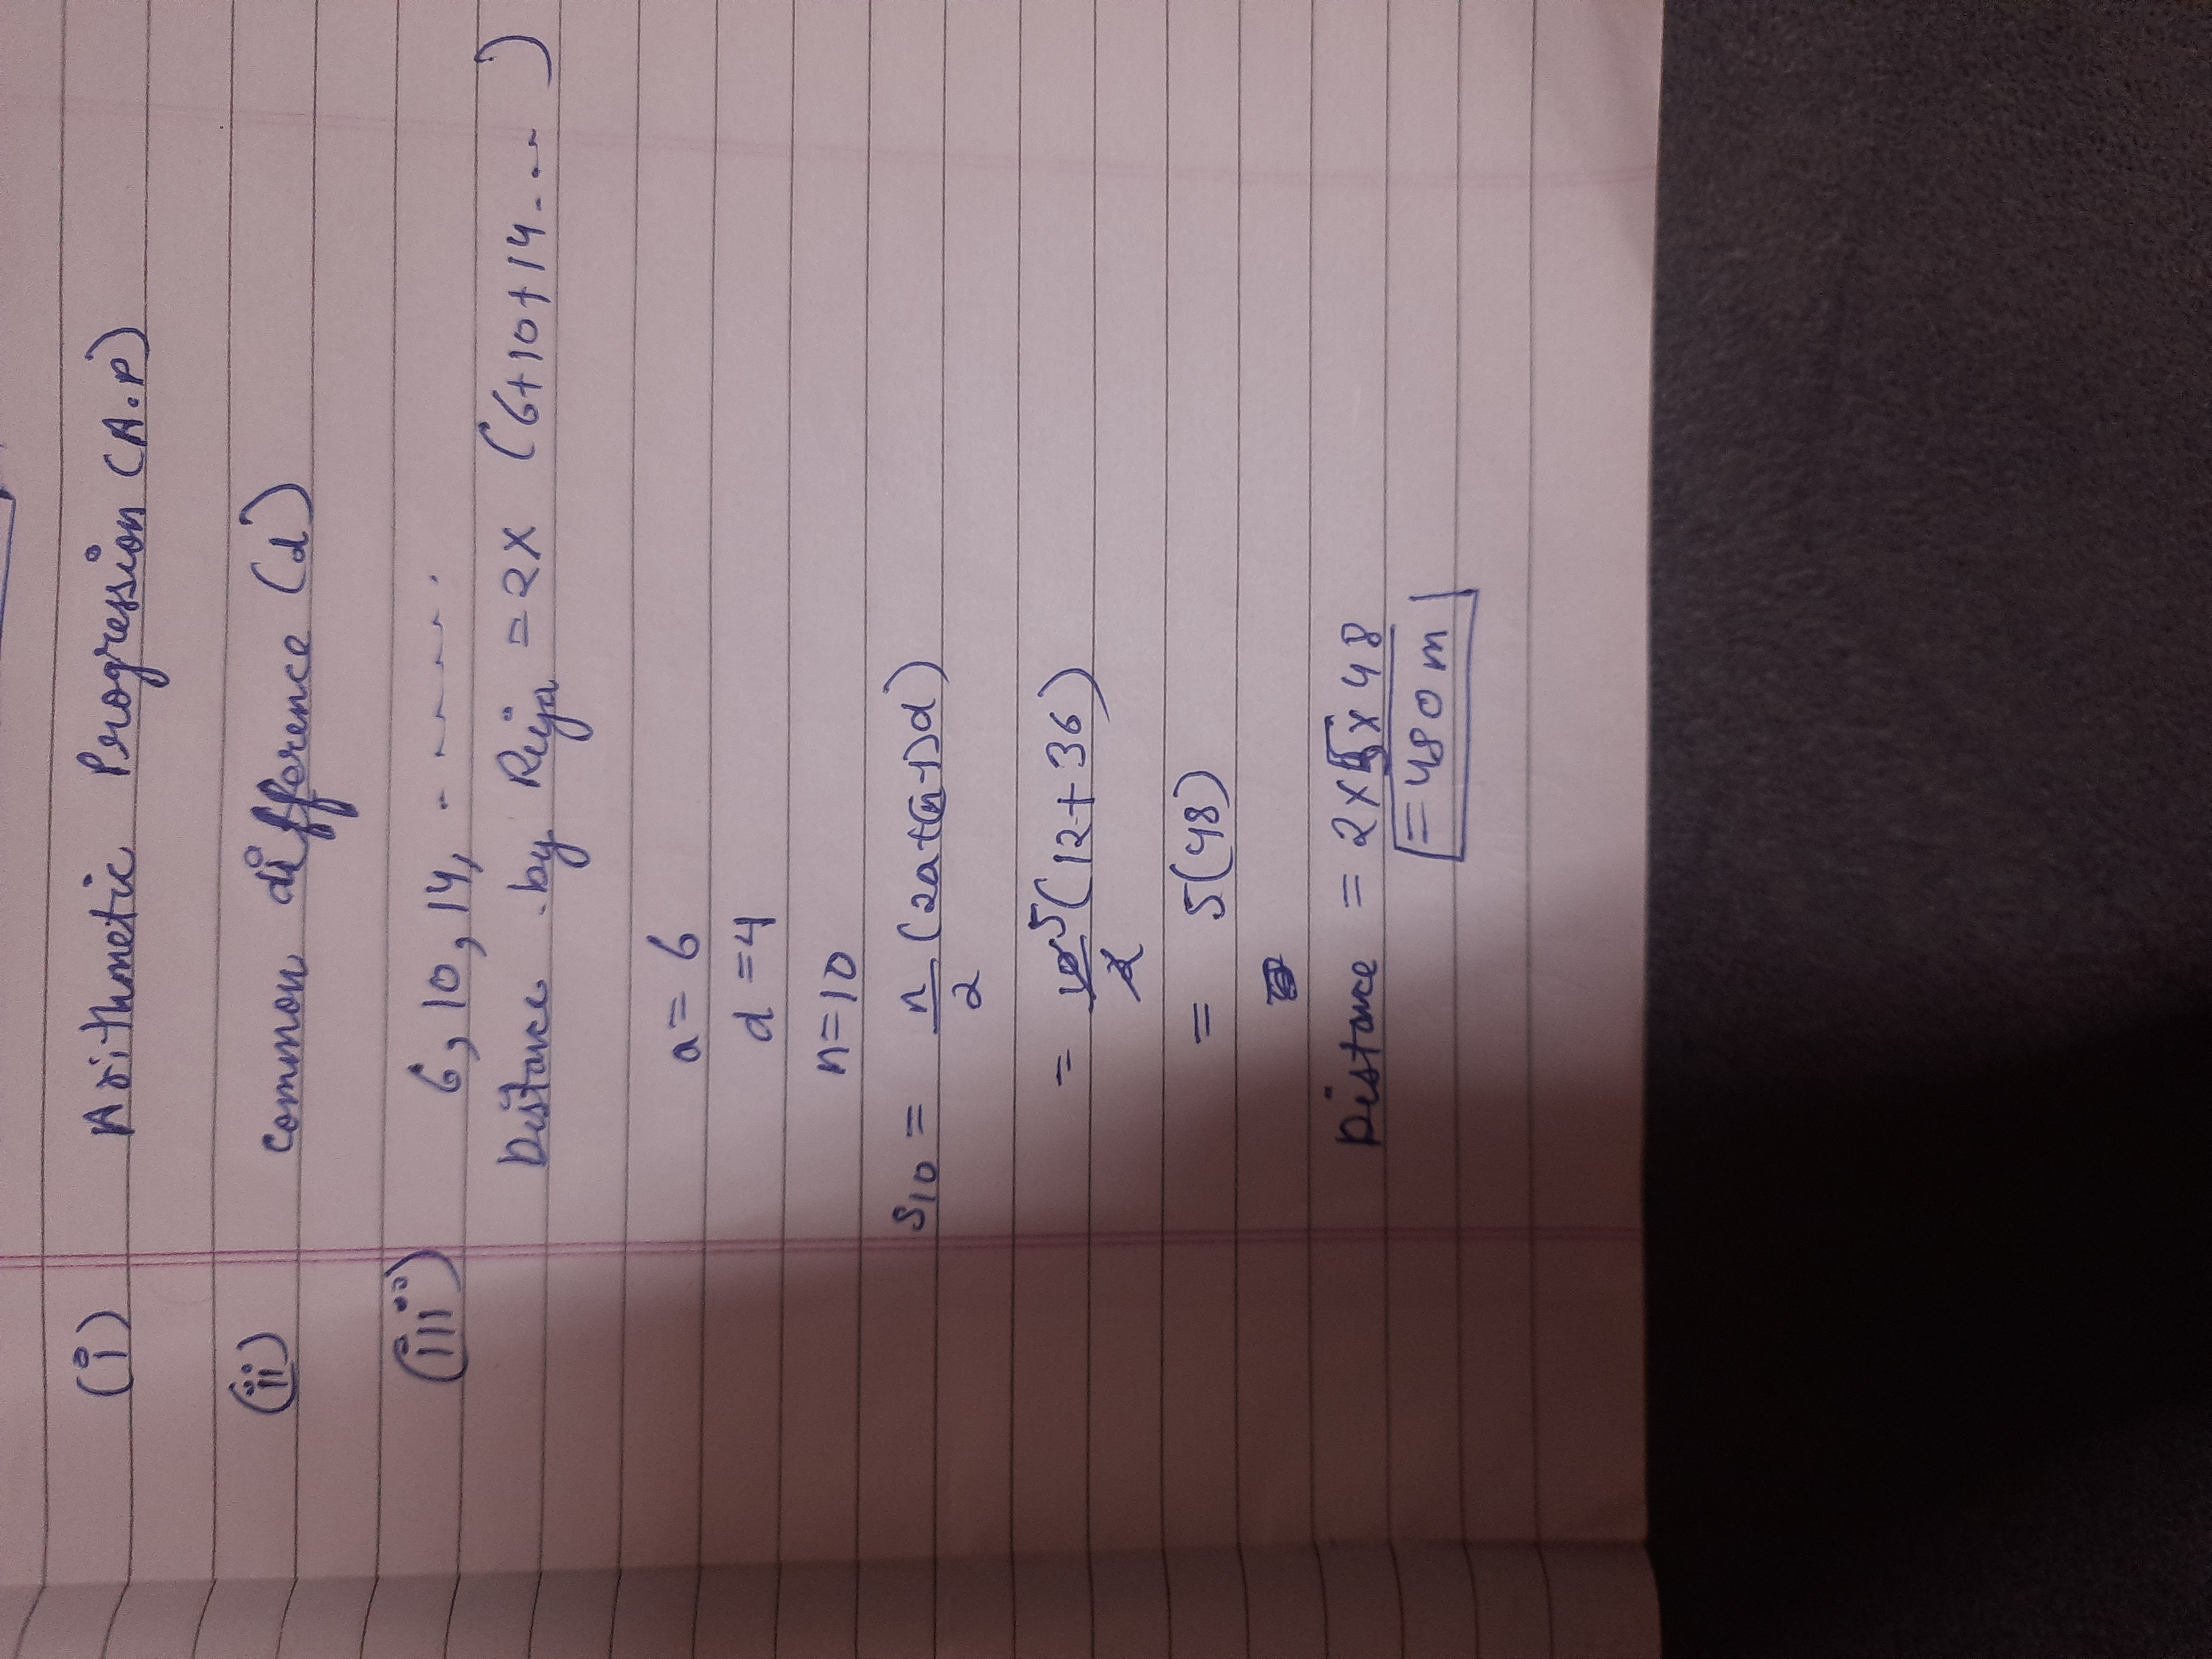 (i) Arithmetic Progression (A.P)
(ii) Common difference (d)
(iii) 6, 10, 14, - - - - - -
Distance by Riya = 2x (6+10+14....)
a = 6
d = 4
n = 10
S10 = n/2 (2a+(n-1)d)
= 10/2 5 (12+36)
= 5(48)
Distance = 2x5x48
= 480 m